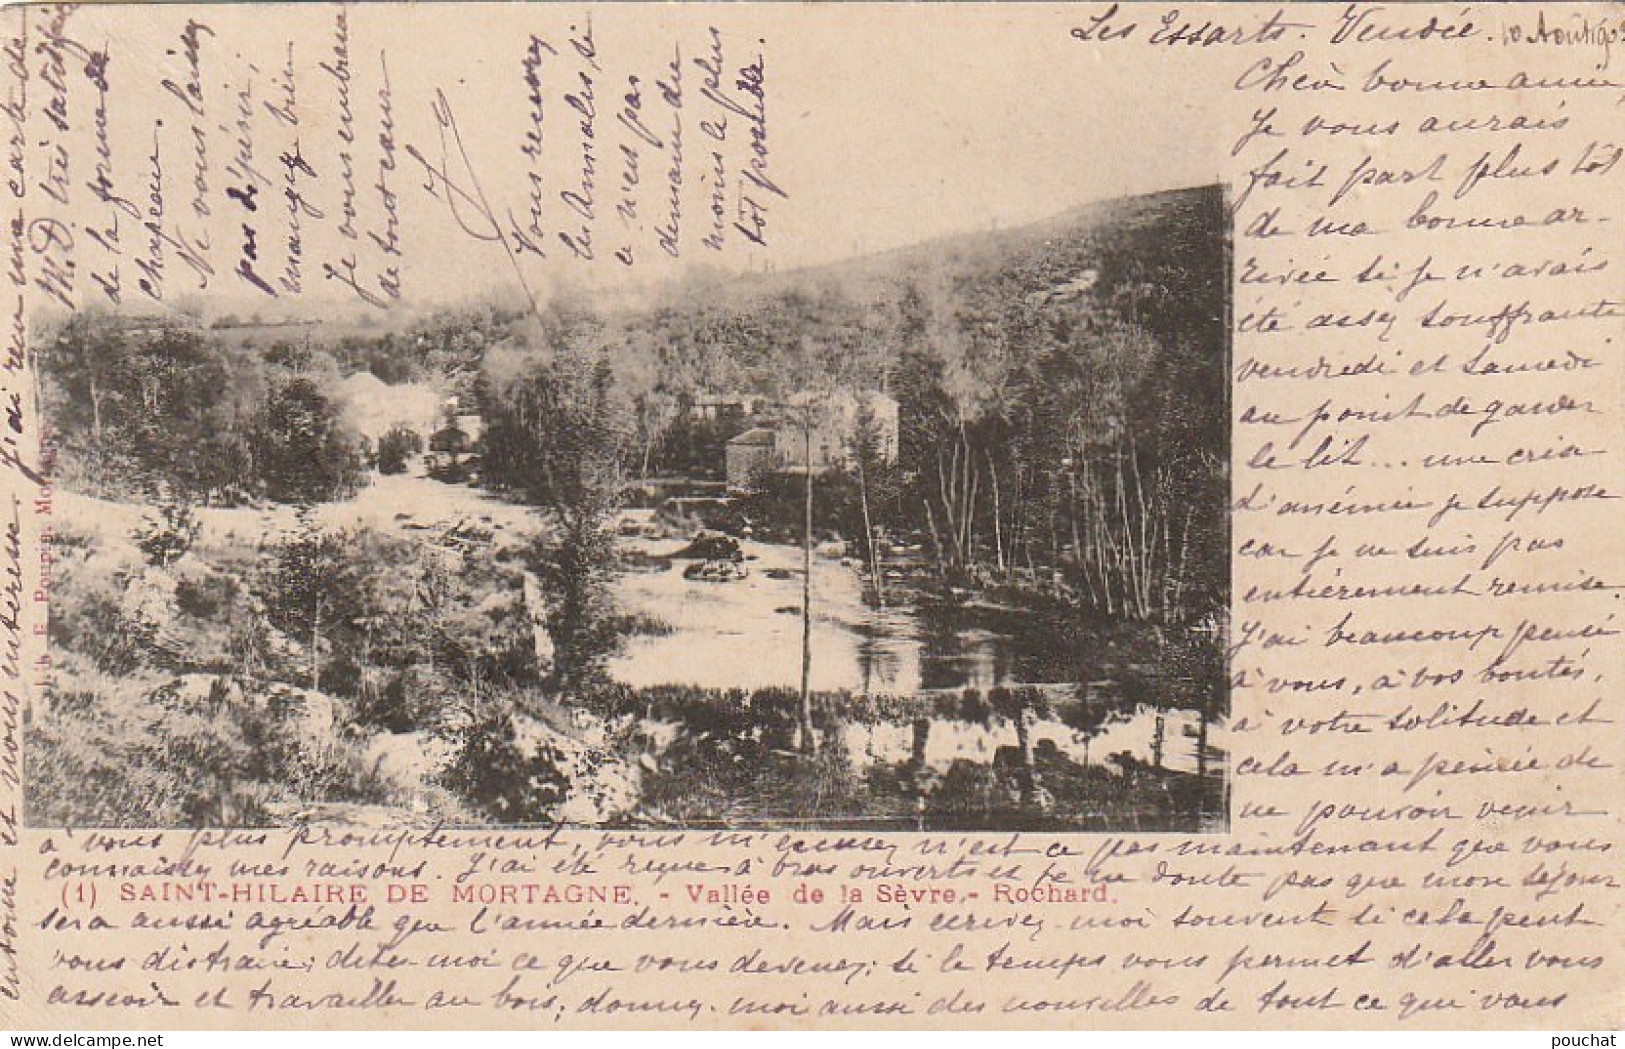 Les Essarts. Vendée. 10 Août 190
Chère bonne amie,
Je vous aurais
fait part plus tôt
de ma bonne ar-
rivée si je n'avais
été assez souffrante
vendredi et Samedi
au point de garder
le lit... une crise
d'anémie je suppose
car je ne suis pas
entièrement remise.
J'ai beaucoup pensé
à vous, à vos bontés,
à votre solitude et
cela m'a peinée de
ne pouvoir venir
à vous plus promptement, vous m'excusez n'est ce pas maintenant que vous
connaissez mes raisons. J'ai été reçue à bras ouverts et je ne doute pas que mon séjour
sera aussi agréable que l'année dernière. Mais écrivez-moi souvent si cela peut
vous distraire; dites-moi ce que vous devenez; si le temps vous permet d'aller vous
asseoir et travailler au bois; donnez-moi aussi des nouvelles de tout ce qui vous
entoure et nous intéresse. J'ai reçu une carte de
M.D. très satisfaite
de la forme de
chapeau.
Ne vous laissez
pas dépérir;
mangez bien
Je vous embrasse
de tout cœur
Vous recevrez
les Annales si
ce n'est pas
demain du
moins le plus
tôt possible.
(1) SAINT-HILAIRE DE MORTAGNE. - Vallée de la Sèvre. - Rochard.
E. Poupin
pouchat